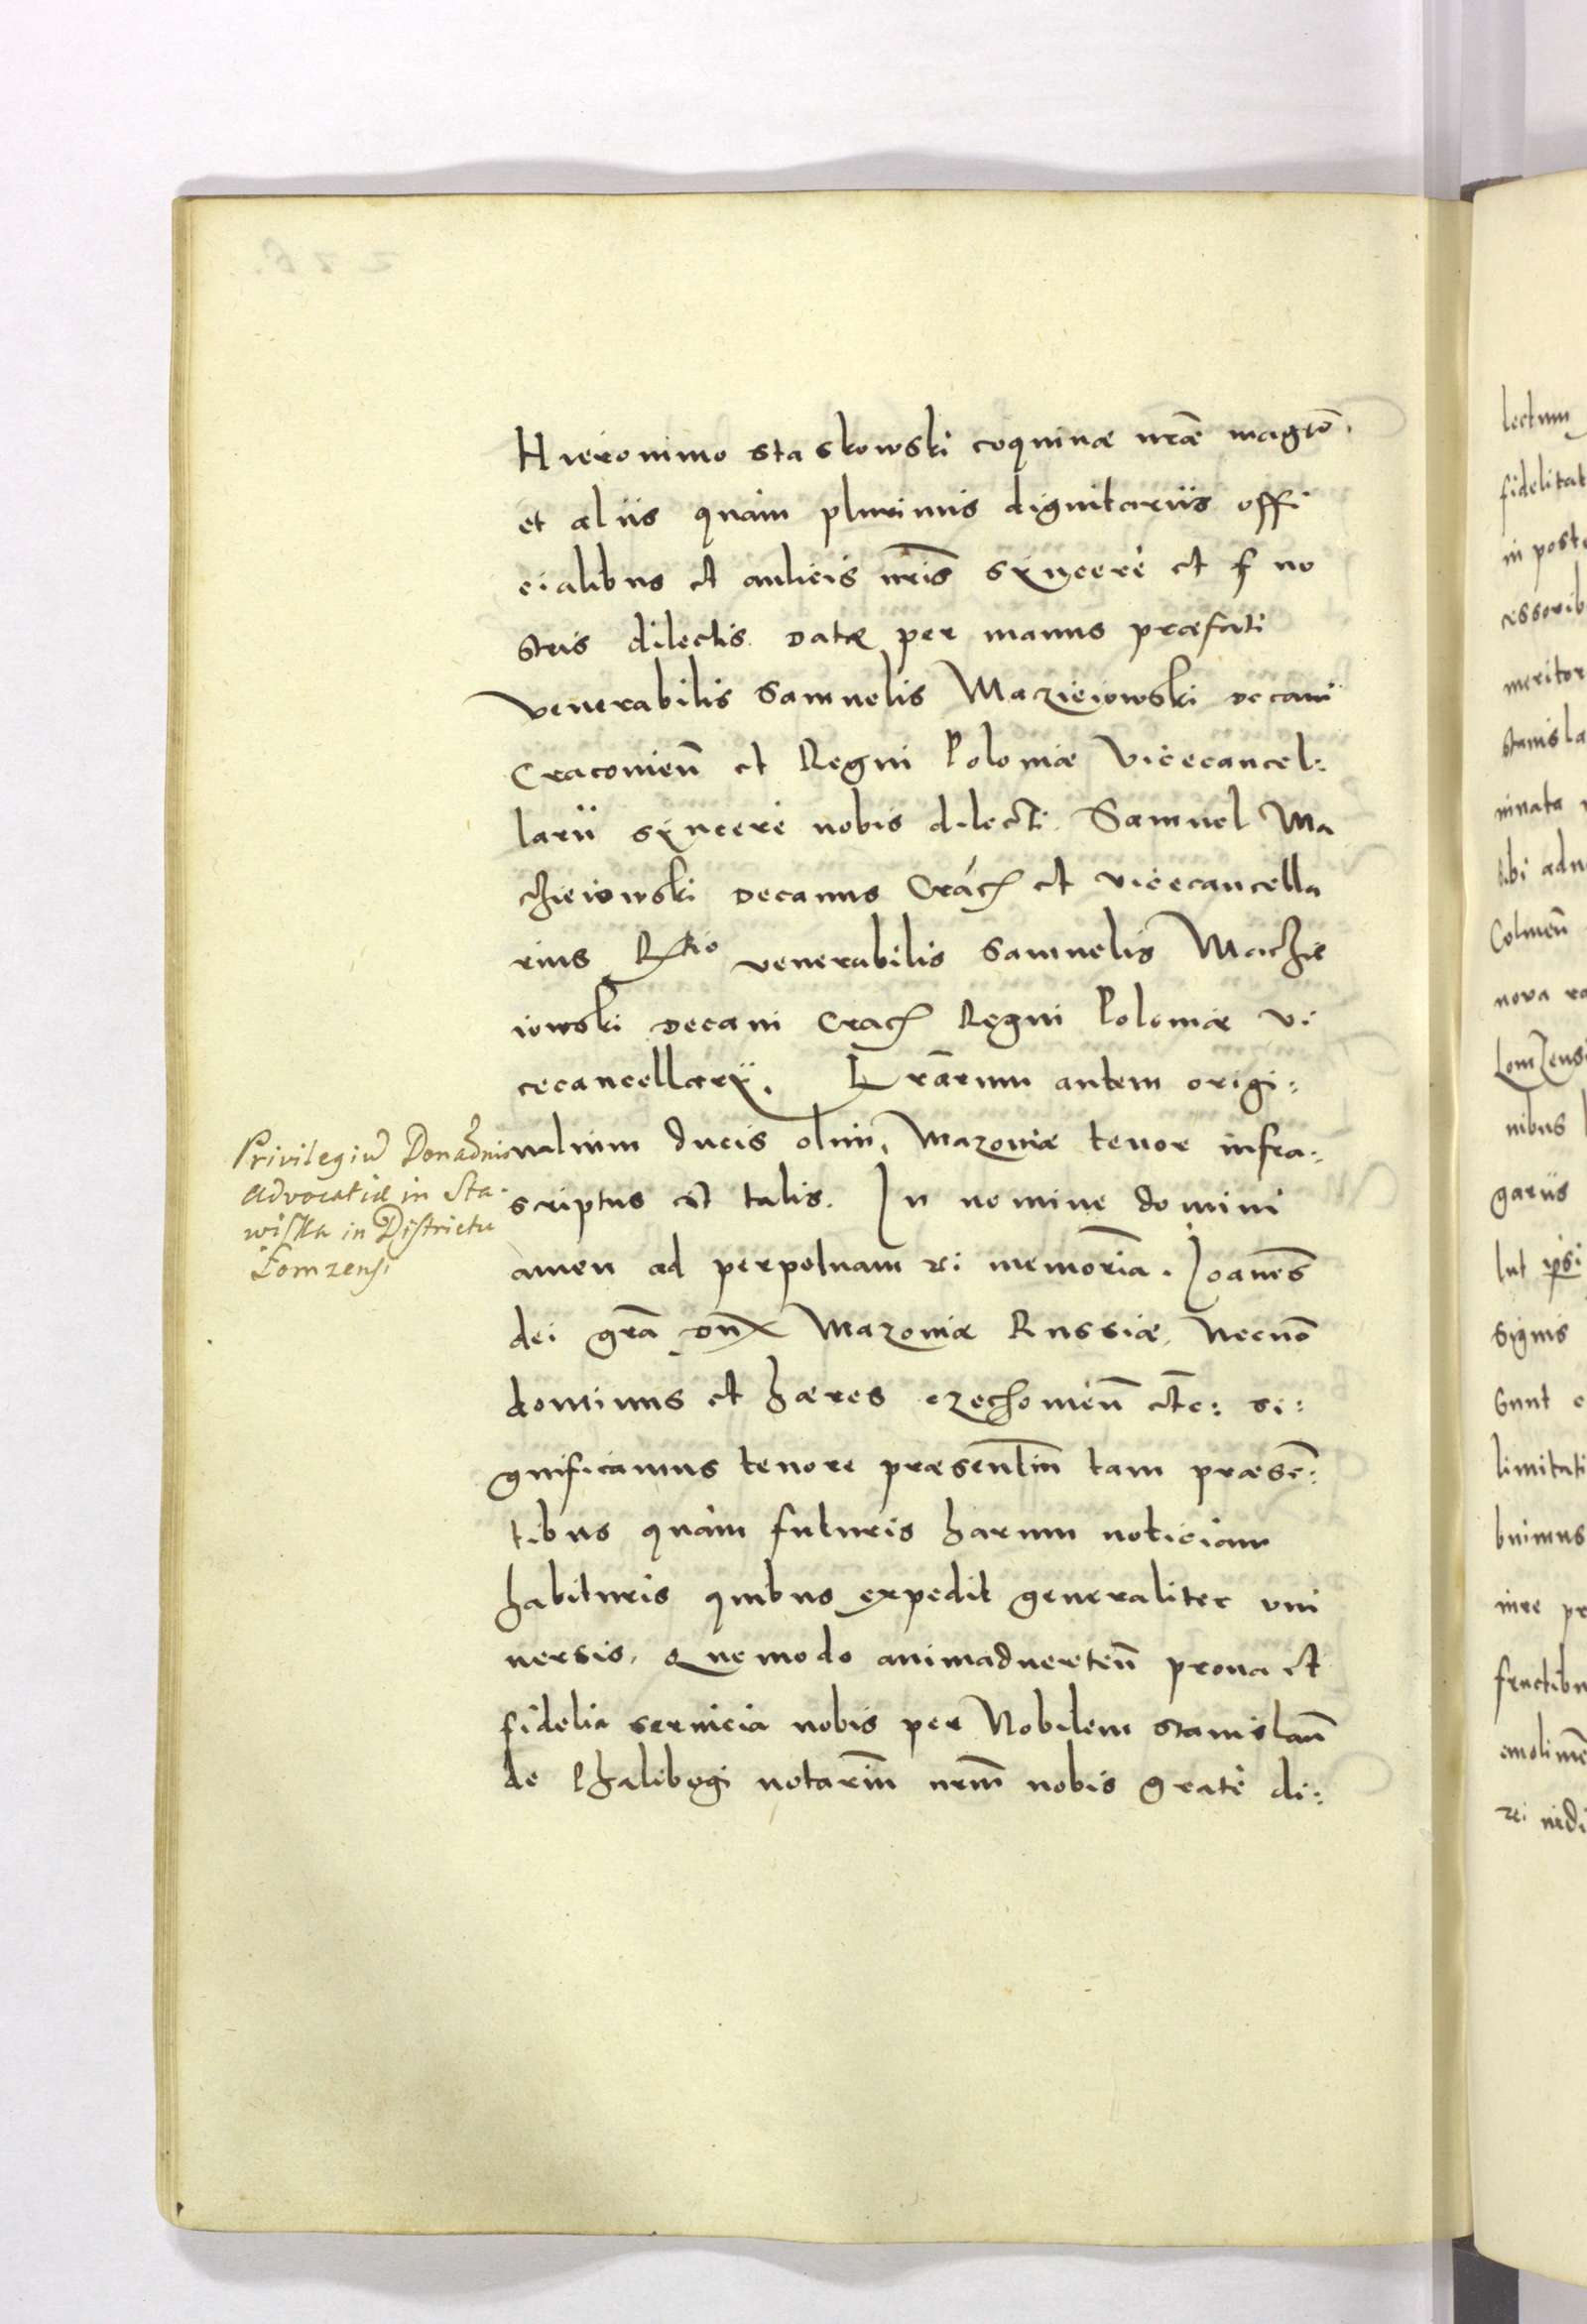 Hieronimo staskowski coquinæ nrāe magrō.
et aliis quàm plurimis dignitariis offi
cialibus et aulicis nrīs syncerè et f no
stris dilectis. Datæ per manus præfati
venerabilis Samuelis Mazieiowski decani
Cracovień et Regni Poloniæ Vicecancel:
larii syncerè nobis dilecti. Samuel Ma
chieiowski decanus Crac et vicecancella
rius Rtio venerabilis Samuelis Machie
iowski decani Crac Regni Poloniæ vi
cecancellarii. Lrārum autem origi:
nalium ducis olim Mazoviæ tenor infra:
scriptus est talis. In nomine domini
amen ad perpetuam rei memoriā. Joannēs
dei grā dux Mazoviæ Russiæ, Necnō
dominus et hæres czechomień etc: si:
gnificamus tenore præsentiū tam præsē:
tibus quàm futuris harum noticiam
habituris quibus expedit generaliter uni
uersis. Quomodo animaduerteñ prona et
fidelia seruicia nobis per Nobilem Stanislaū
de Chalibogi notariū nrm̄ nobis gratè di:
Privilegiū Donaōnis
Advocatiæ in Sta
wiska in Districtu
Łomzensi
lectum
fidelitat
in poste
cessorib
meritor
stanisla
minata
sibi adu
Colmeñ
nova ra
Lomzensi
nibus
gariis
lut ipsi
signis
Sunt
limitati
buimus
iure pr
fructibu
emolimē
rei
226.